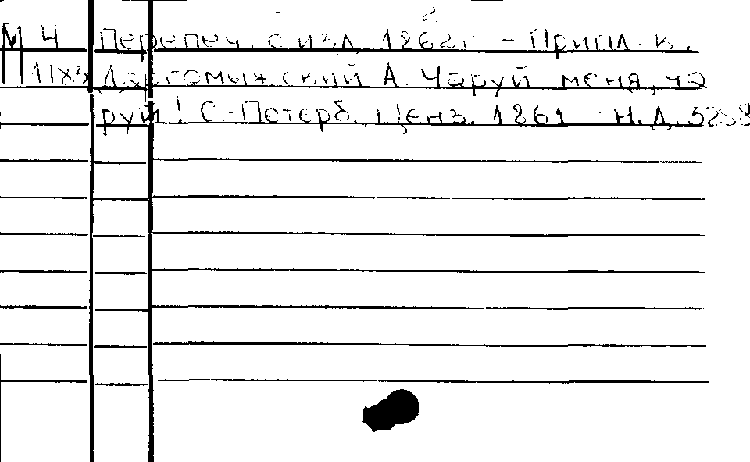 М Ч Перепеч. с изд. 1862г. - Припл. к.
Даргомыжский А. Чаруй меня, ча
руй! С.-Петерб. Ценз. 1861 Н.Д.